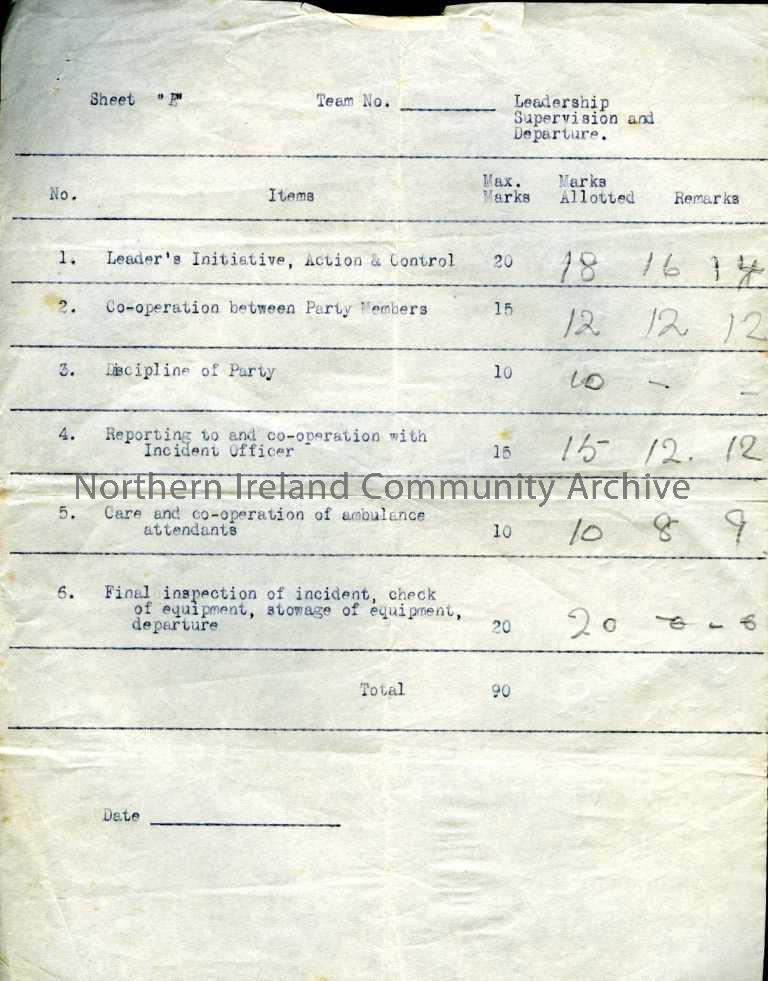 Sheet "E" Team No. Leadership
Supervision and
Departure.
Max. Marks
No. Items Marks Allotted Remarks
1. Leader's Initiative, Action & Control 20 18 16 14
2. Co-operation between Party Members 15 12 12 12
3. Discipline of Party 10 10 - -
4. Reporting to and co-operation with
Incident Officer 15 15 12. 12
Northern Ireland Community Archive
5. Care and co-operation of ambulance
attendants 10 10 8 9
6. Final inspection of incident, check
of equipment, stowage of equipment,
departure 20 20
Total 90
Date